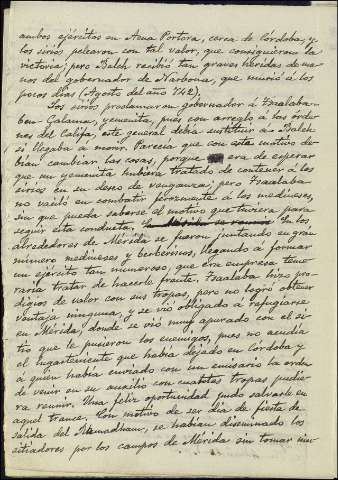 ambos ejércitos en Acua Portora, cerca de Córdoba, y
los sirios pelearon con tal valor, que consiguieron la
victoria; pero Balch recibió tan graves heridas de ma-
nos del gobernador de Narbona, que murió á los
pocos días (Agosto del año 742).
Los sirios proclamaron gobernador á Tsalaba-
ben-Çalama, yemenita, pues con arreglo á las órde-
nes del Califa, este general debía sustituir á Balch
si llegaba á morir. Parecía que con este motivo de-
bían cambiar las cosas, porque era de esperar
que un yemenita hubiera tratado de contener á los
sirios en su deseo de venganza; pero Tsalaba
no vaciló en combatir ferozmente á los medineses,
sin que pueda saberse el motivo que tuviera para
seguir esta conducta. En los
alrededores de Mérida se fueron juntando en gran
número medineses y berberiscos, llegando á formar
un ejército tan numeroso, que era empresa teme-
raria tratar de hacerle frente. Tsalaba hizo pro-
digios de valor con sus tropas, pero no logró obtener
ventaja ninguna, y se vió obligado á refugiarse
en Mérida, donde se vió muy apurado con el si-
tio que le pusieron los enemigos, pues no acudía
el lugarteniente que había dejado en Córdoba y
á quién había enviado con un emisario la orden
de venir en su auxilio con cuantas tropas pudie-
ra reunir. Una feliz oportunidad pudo salvarle en
aquel trance. Con motivo de ser día de fiesta de
salida del Ramadham, se habían diseminado los
sitiadores por los campos de Mérida sin tomar nin-